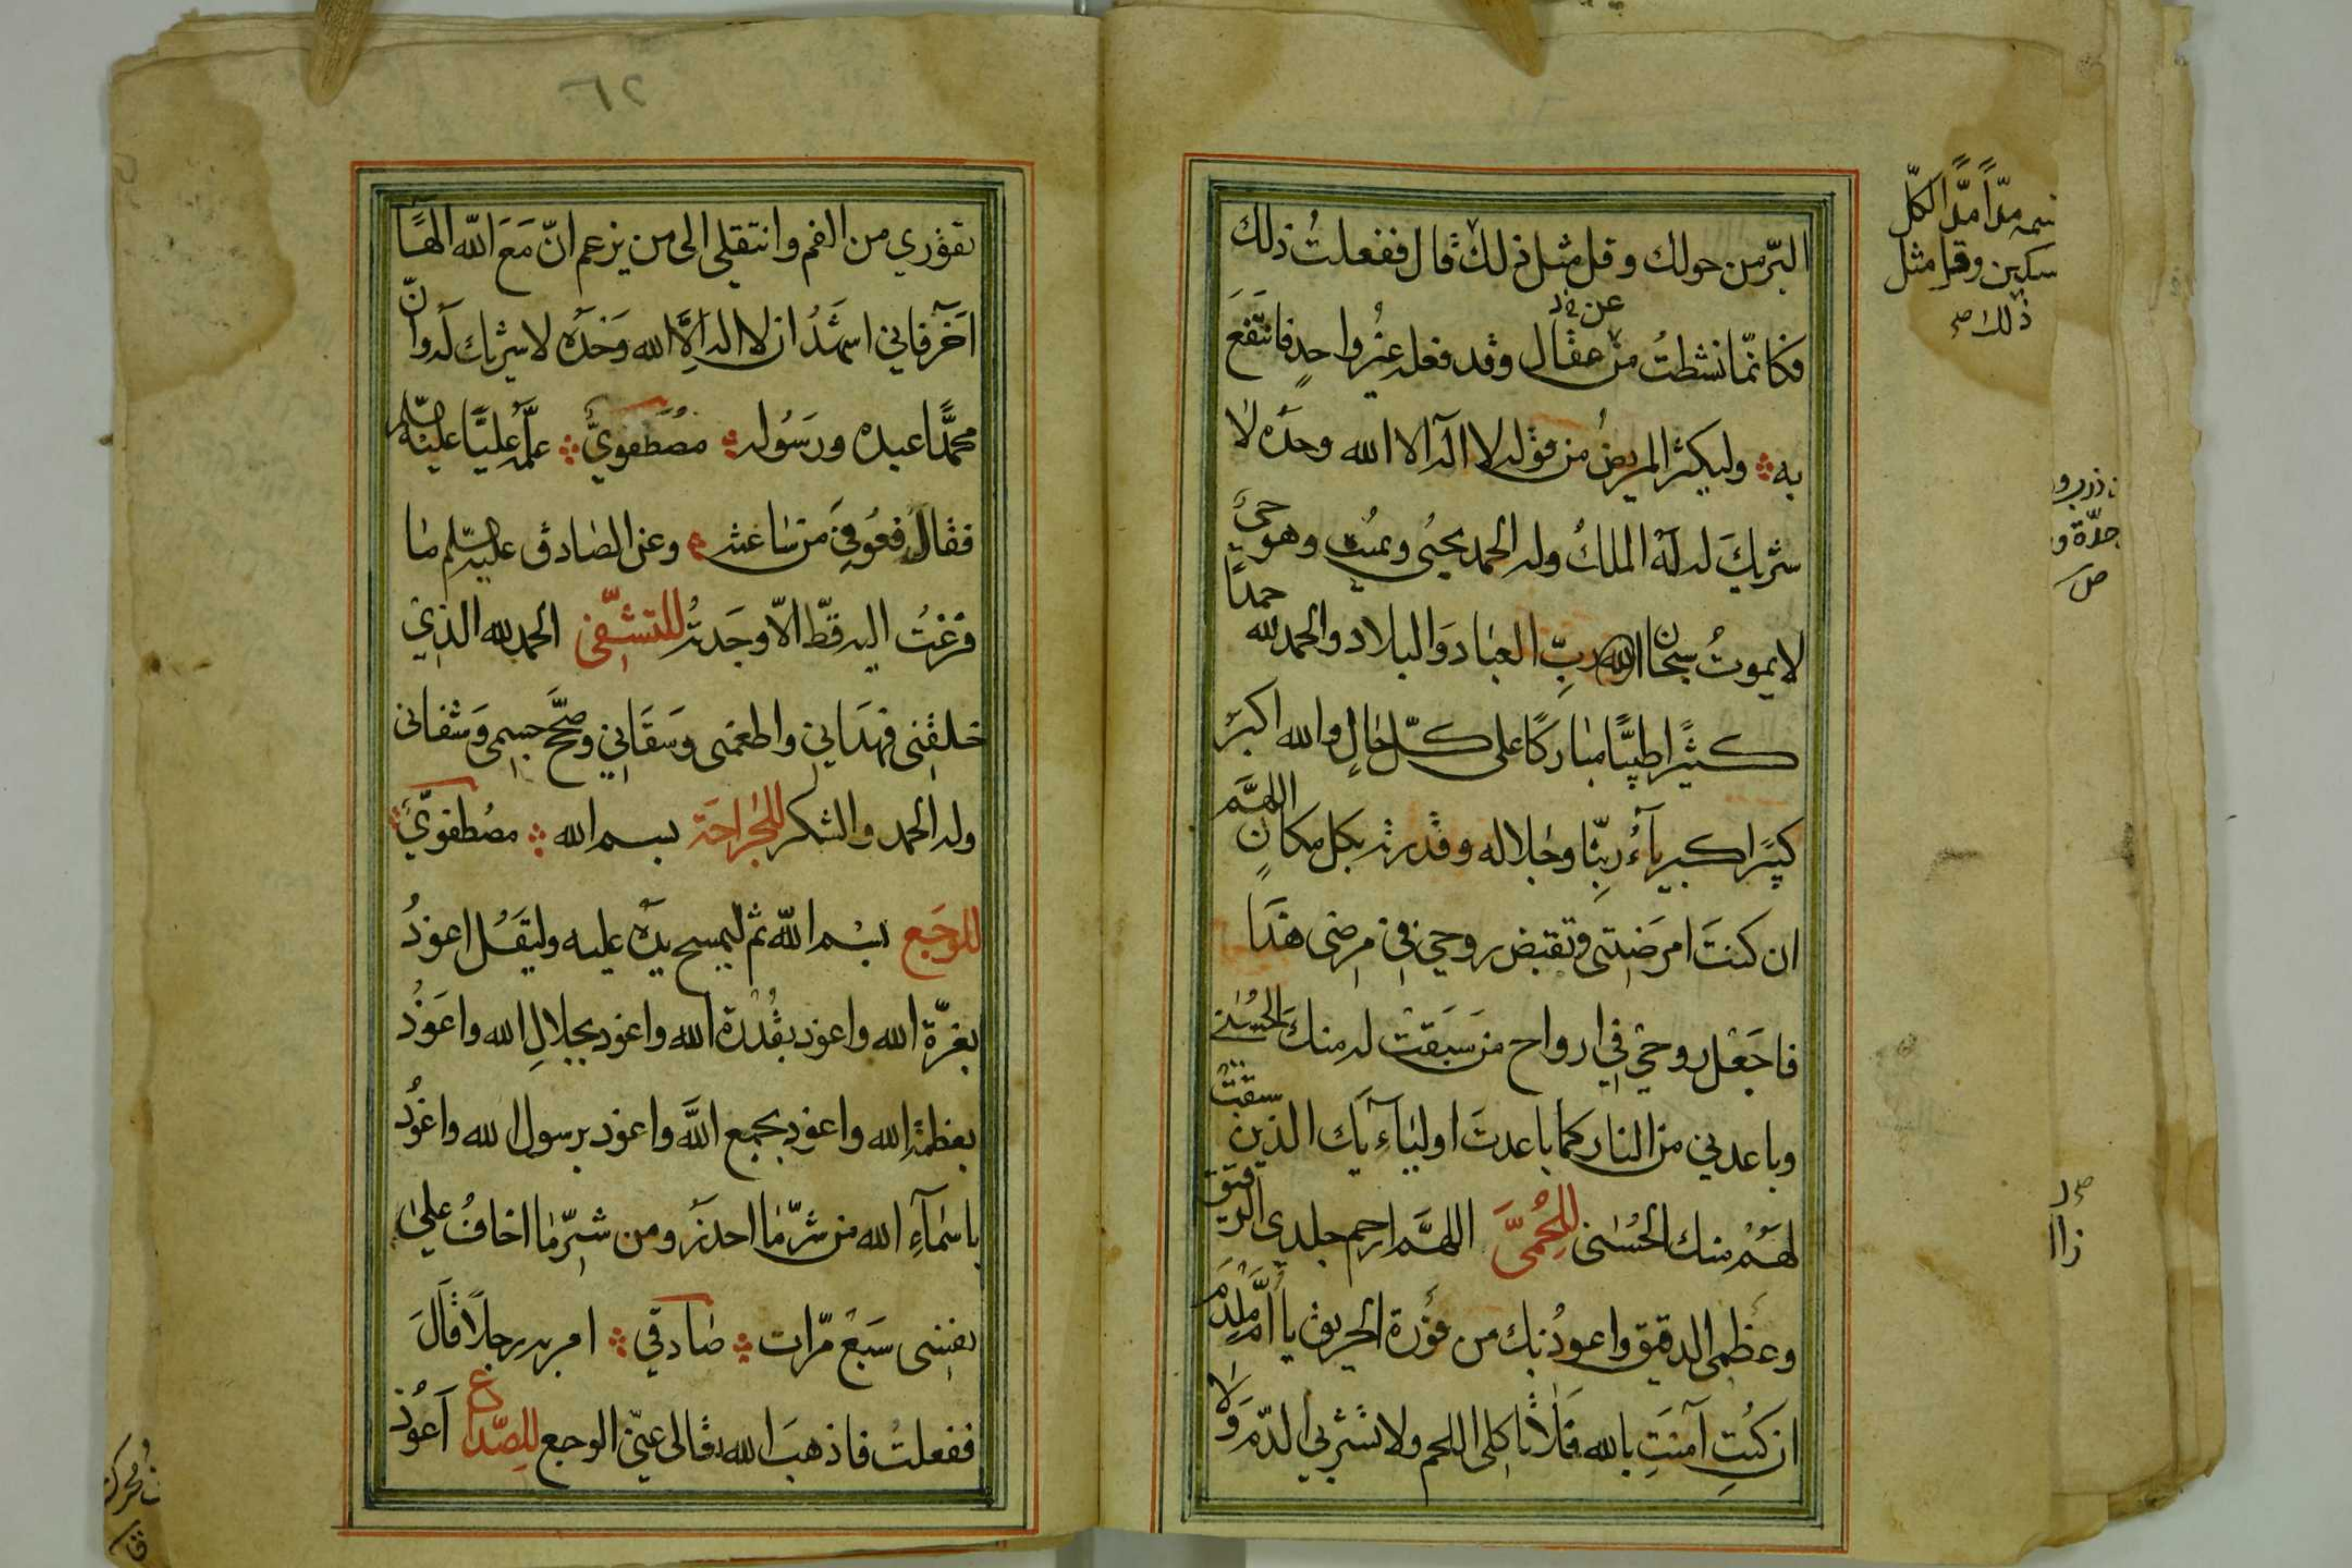 البرّ من حولك وقل مثل ذلك قال ففعلتُ ذلك
فكانّما نشطتُ من عقال وقد فعله غيرُ واحدٍ فانتَفعَ
به وليكثر المريضُ من قوله لا اله الا الله وحدَه لا
شريكَ له لَهُ الملكُ وله الحمد يحيُى ويميُت وهو حىٌّ
لا يموتُ سبحان الله ربِّ العباد وَالبلاد والحمد لله حمدًا
كثيًرا طيّبًا مباركًا على كلّ حالٍ والله اكبرُ
كبيًرا كبرياۤءُ ربِّنا وجلاله وقدرته بكل مكانٍ اللهمَّ
ان كنتَ امرَضتنى وتقبض روحي في مرضى هذَا
فاجعَل روحي في ارواح من سَبَقتْ له منك الحُسنى
وباعدني من النار كما باعدتَ اولياۤءِيَك الذين سبقتْ
لهُم منك الحُسنى للِحُمىَّ اللهمَّ ارحم جلدى الرقيق
وعظمى الدقيق واعوذُ بك من فَوْرة الحريق يا اُمَّ مِلْدَم
ان كُنتِ آمنتِ بالله فَلا تأكلى اللحم ولا تشربي الدّمَ وَلا
نسمه مدّاً مدًّا لكلّ
مسكين وقل مثل
ذلك صح
عن خ د
٦٢
تفوري من الفم وانتقلي الى من يزعم انّ مَعَ اللّه الهًا
آخَر فاني اشهَدُ ان لا اله الَّا الله وَحْدَه لا شريك لَه وانّ
محمَّدًا عبده ورَسُوله مصُطَفويٌّ علَّمه عليًّا عليه السّلم
فقالَه فعُوفِيَ من سَاعته وعن الصّادق عليه السّلم مَا
فزعتُ اليه قطّ الاّ وجَدته للتشَفّى الحمد لله الذي
خلقنى فهدَانِي واطعمنى وسَقَاني وصحَّح جسمى وَشفانى
وله الحمد والشكر للجَرَاحَة بسم الله مصُطفويٌّ
للوَجَع بسْم اللّه ثم ليمسح يدَه عليه وليقُل اعوذُ
بعزّة الله واعوذ بقُدْرة الله واعوذ بجلالِ الله واعَوذُ
بعظمةِ الله واعوذ بجمع اللَّه واعوذ برسول الله واعوذُ
باسماۤءِ الله من شرّ مَا احذَر ومن شرّ مَا اخافُ علىٰ
نفسى سَبْعَ مرّات صَادقي امر به رجلًا قَالَ
ففعلتُ فاذهبَ الله تعالى عنّى الوجع للِصّداع اَعوُذ